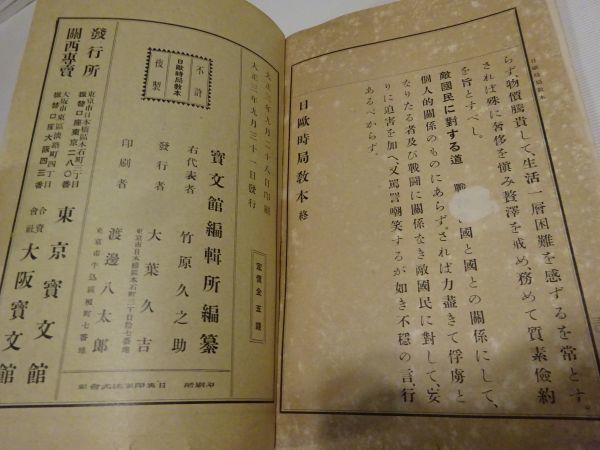 日歐時局教本
らず、物價騰貴して、生活一層困難を感ずるを常とす。
されば殊に奢侈を愼み贅澤を戒め、務めて質素儉約
を旨とすべし。
敵國民に對する道 戰 國と國との關係にして、
個人的關係のものにあらず。されば力盡きて俘虜と
なりたる者及び戰鬪に關係なき敵國民に對して、妄
りに迫害を加へ、又罵詈嘲笑するが如き不穩の言、行
あるべからず。
日歐時局教本 終
大正三年九月二十八日印刷
大正三年九月三十一日發行
定價金五錢
不許
日歐時局教本
複製
寶文館編輯所編纂
右代表者 竹原久之助
發行者 大葉久吉
東京市日本橋區本石町三丁目拾七番地
印刷者 渡邊八太郎
東京市牛込區榎町七番地
印刷所 日淸印刷株式會社
發行所
東京市日本橋區本石町三丁目
振替口座東京二八〇番
東京寶文館
關西專賣
大阪市東區淡路町四丁目
振替口座大阪四三番
合資會社 大阪寶文館